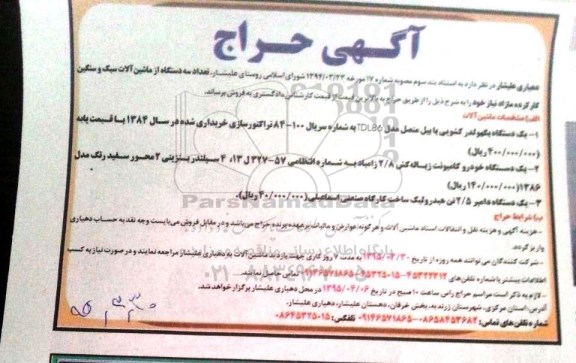 آگهی حراج
دهیاری علیشار در نظر دارد به استناد بند سوم مصوبه شماره ۱۷ مورخه ۱۳۹۴/۰۳/۲۳ شورای اسلامی روستای علیشار، تعداد سه دستگاه از ماشین آلات سبک و سنگین
کارکرده مازاد نیاز خود را به شرح ذیل را از طریق حراج به بالاترین قیمت از قیمت کارشناس دادگستری به فروش برساند.
الف) مشخصات ماشین آلات
۱- یک دستگاه بکهو لدر کشویی با بیل متصل مدل TDL86 به شماره سریال ۱۰۰-۸۴ تراکتورسازی خریداری شده در سال ۱۳۸۴ با قیمت پایه
(۴۰۰/۰۰۰/۰۰۰ ریال)
۲- یک دستگاه خودرو کامیونت زباله کش ۲/۸ زامیاد به شماره انتظامی ۵۷-۳۲۷ ل ۱۳، ۴ سیلندر بنزینی ۲ محور سفید رنگ مدل
۱۳۸۶ (۱۴۰/۰۰۰/۰۰۰ ریال)
۳- یک دستگاه دامپر ۲/۵ تن هیدرولیک ساخت کارگاه صنعتی اسماعیلی (۴۰/۰۰۰/۰۰۰ ریال).
ب) شرایط حراج
- هزینه آگهی و هزینه نقل و انتقالات اسناد ماشین آلات و هرگونه عوارض و مالیات بر عهده برنده حراج می‌باشد و در مقابل فروش می‌بایست وجه نقد به حساب دهیاری
واریز گردد.
- شرکت کنندگان می توانند همه روزه از تاریخ ۱۳۹۵/۰۳/۳۰ به مدت ۷ روز کاری جهت بازدید ماشین آلات به دهیاری علیشار مراجعه نمایند و در صورت نیاز به کسب
اطلاعات بیشتر با شماره تلفن‌های تماس حاصل نمایند.
- لازم به ذکر است مراسم حراج راس ساعت ۱۰ صبح در تاریخ ۱۳۹۵/۰۴/۰۶ در محل دهیاری علیشار برگزار خواهد شد.
آدرس: استان مرکزی، شهرستان زرندیه، بخش خرقان، دهستان علیشار، دهیاری علیشار.
شماره تلفن های تماس: ۰۸۶۵۸۴۵۳۶۸۲-۰۹۱۴۶۵۷۱۸۶۵ تلفکس: ۰۸۶۴۵۳۲۵۰۱۵
ParsNamadData
پایگاه اطلاع رسانی مناقصه و مزایده